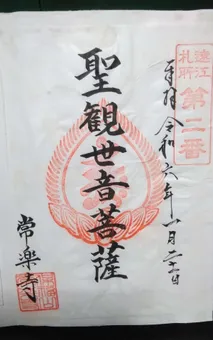 遠江
札所
第二番
奉拝 令和六年一月二十一日
聖観世音菩薩
常楽寺